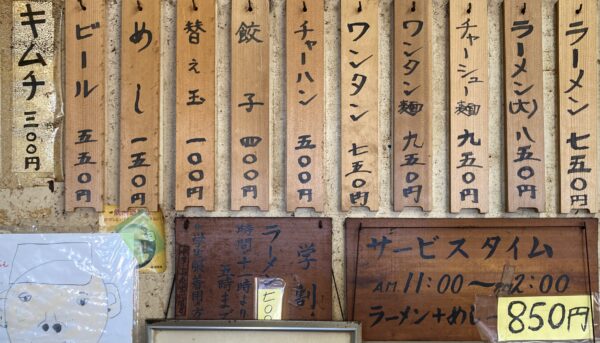 ラーメン 七五〇円
ラーメン(大) 八五〇円
チャーシュー麺 九五〇円
ワンタン麺 九五〇円
ワンタン 七五〇円
チャーハン 五〇〇円
餃子 四〇〇円
替え玉 一〇〇円
めし 一五〇円
ビール 五五〇円
キムチ 三〇〇円
学割
ラーメン 七〇〇
時間 十一時より
五時まで
サービスタイム
AM 11:00〜PM 2:00
ラーメン+めし
850円